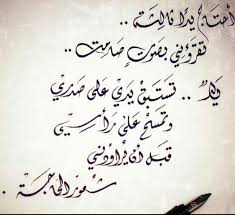 أحتاج يدًا ثالثة ..
تقرؤني بصوتٍ صامت ..
.. تستبق يدي على صدري
وتمسح على رأسي
قبل أن يراودني
شعور الحاجة .